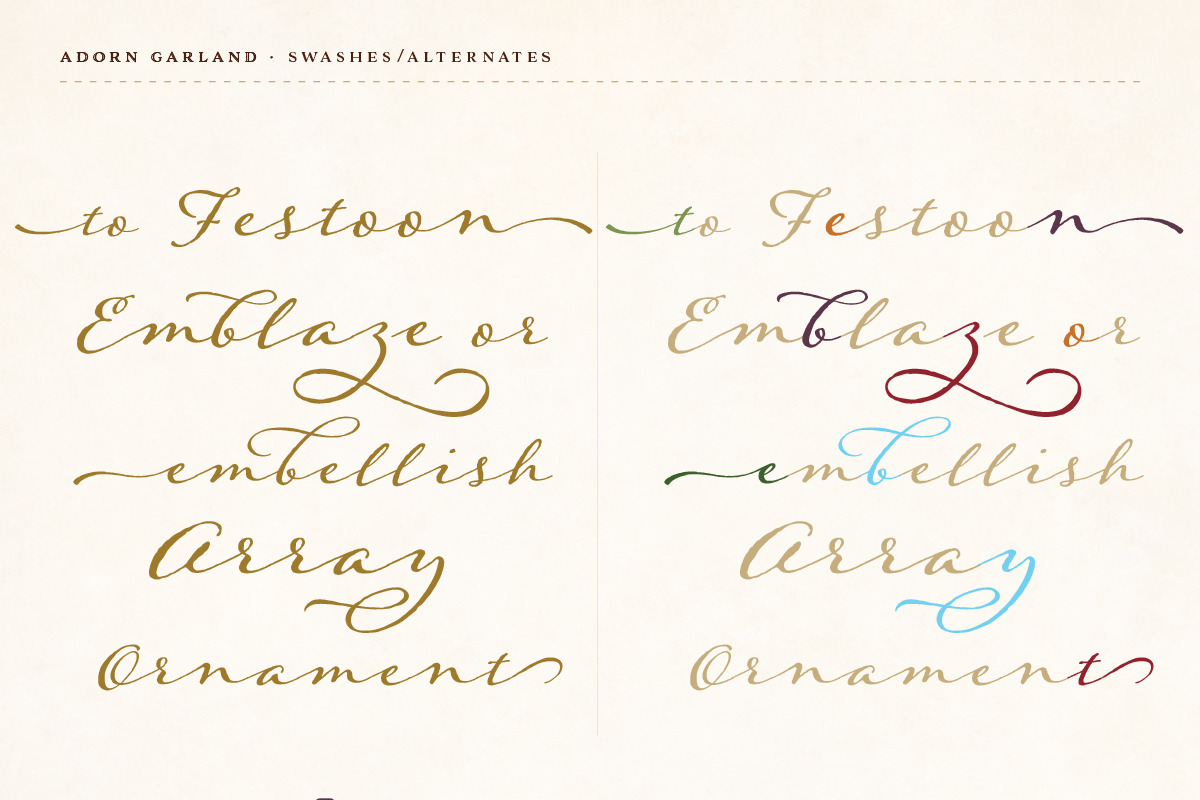 ADORN GARLAND · SWASHES/ALTERNATES
to Festoon
Emblaze or
embellish
Array
Ornament
to Festoon
Emblaze or
embellish
Array
Ornament